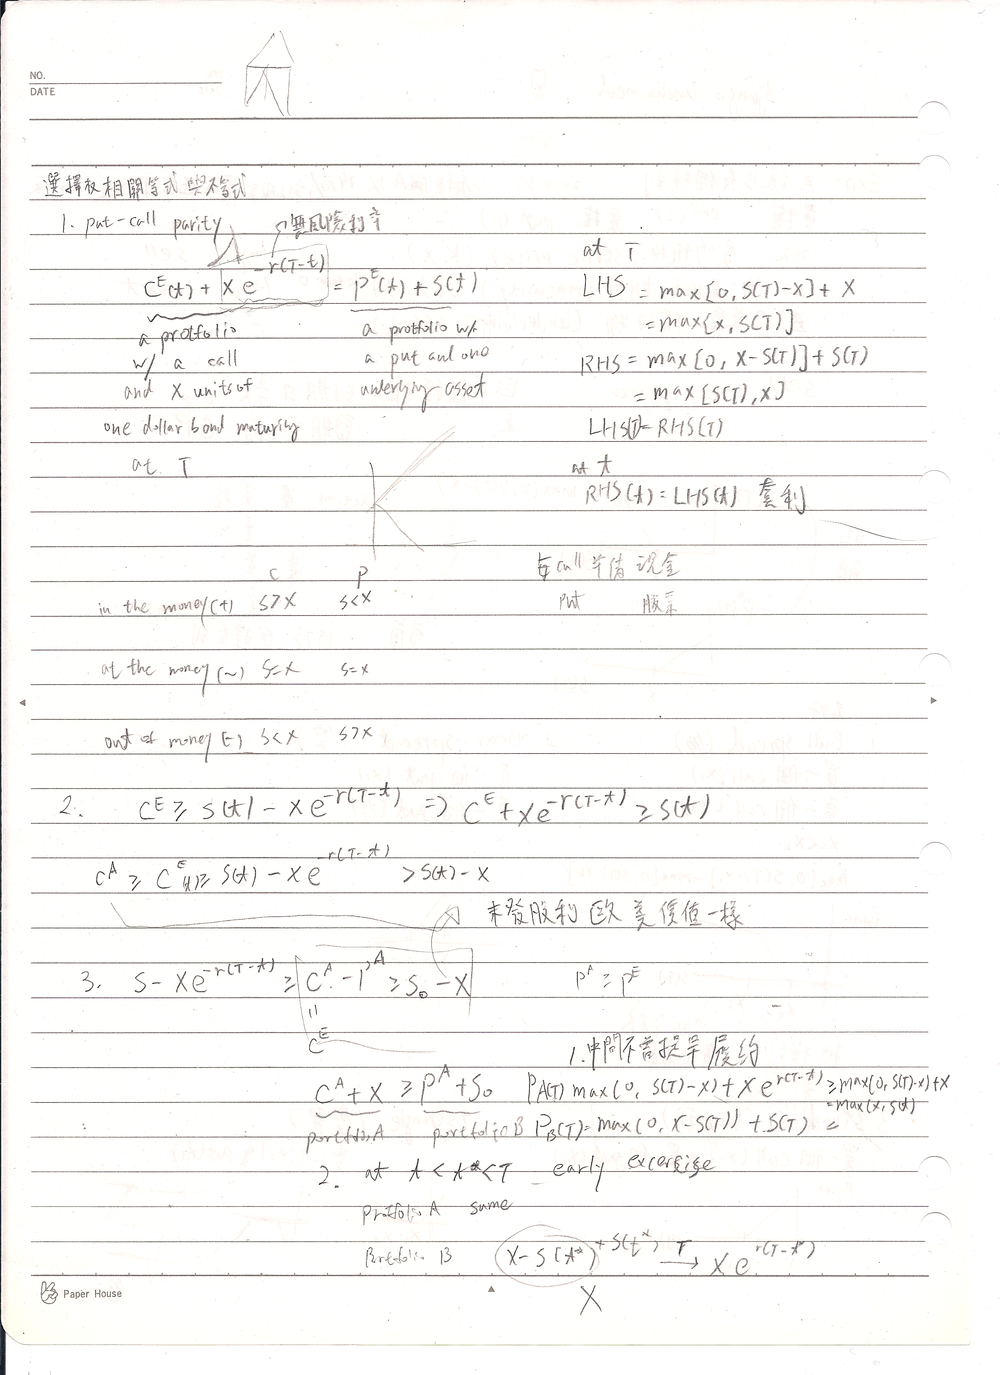 NO.
DATE
選擇权相關等式與不等式
1. put-call parity
無風險利率
C^E(t) + X e^{-r(T-t)} = P^E(t) + S(t)
a protfolio
w/ a call
and X units of
one dollar bond maturity
at T
a protfolio w/
a put and one
underlying asset
at T
LHS = max[0, S(T)-X] + X
= max[X, S(T)]
RHS = max[0, X-S(T)] + S(T)
= max[S(T), X]
LHS(T) = RHS(T)
at t
RHS(t) = LHS(t) 套利
C P
in the money (+) S>X S<X
at the money (~) S=X S=X
out of money (-) S<X S>X
call 準備 現金
put 股票
2. C^E ≥ S(t) - Xe^{-r(T-t)} ⇒ C^E + Xe^{-r(T-t)} ≥ S(t)
C^A ≥ C^E(t) ≥ S(t) - Xe^{-r(T-t)} > S(t) - X
未發股利 歐 美 價值一樣
3. S - Xe^{-r(T-t)} ≥ C^A - P^A ≥ S₀ - X
=
C^E
P^A ≥ P^E
1. 中間不曾提早履約
C^A + X ≥ P^A + S₀
portfolio A portfolio B
P_A(T) max(0, S(T)-X) + X e^{r(T-t)} ≥ max(0, S(T)-X) + X
= max(X, S(t)
P_B(T) = max(0, X-S(T)) + S(T) =
2. at t < t* < T early excercise
Protfolio A same
Portfolio B X-S(t*) + S(t*) T→ X e^{r(T-t*)}
X
Paper House